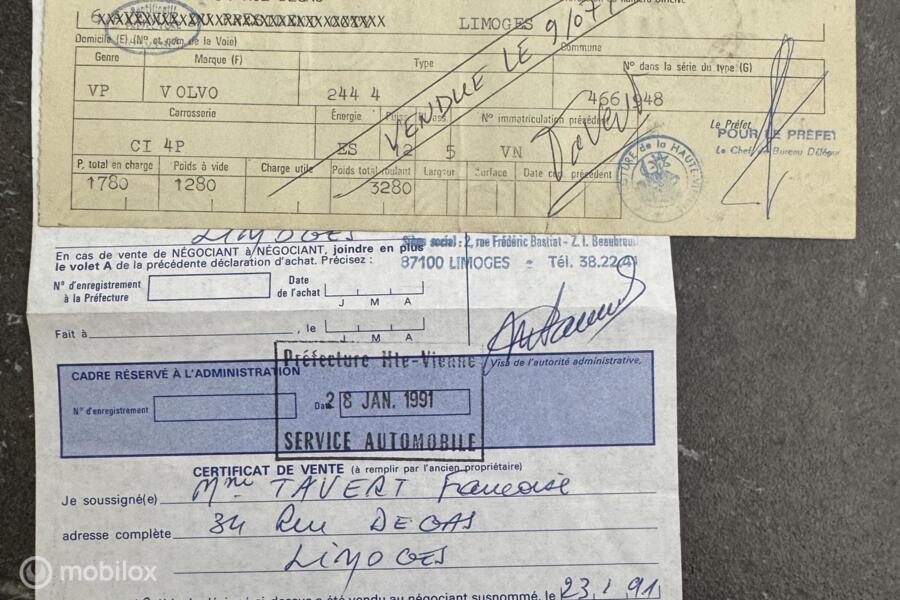 LIMOGES
Domicile (E) (Nº et nom de la Voie)
Commune
Genre
Marque (F)
Type
Nº dans la série du type (G)
VP
VOLVO
244 4
466 948
VENDUE LE
Carrosserie
Énergie
Nº immatriculation précédent
CI 4P
ES
5
VN
Le Préfet
POUR LE PREFET
Le Chef de Bureau Délégué
P. total en charge
Poids à vide
Charge utile
Poids total roulant
Largeur
Surface
Date
précédent
1780
1280
3280
LIMOGES
En cas de vente de NÉGOCIANT à NÉGOCIANT, joindre en plus
le volet A de la précédente déclaration d'achat. Précisez :
Siège social : 2, rue Frédéric Bastiat - Z.I. Beaubreuil
87100 LIMOGES - Tél. 38.22.41
Nº d'enregistrement
à la Préfecture
Date
de l'achat
J M A
Fait à
, le
J M A
Visa de l'autorité administrative,
Préfecture Hte-Vienne
CADRE RÉSERVÉ À L'ADMINISTRATION
Nº d'enregistrement
Da
28 JAN. 1991
SERVICE AUTOMOBILE
CERTIFICAT DE VENTE (à remplir par l'ancien propriétaire)
Je soussigné(e) Mme TAVERT Francoise
adresse complète 34 Rue DEGAS
LIMOGES
vendu au négociant susnommé, le 23.1.91
mobilox